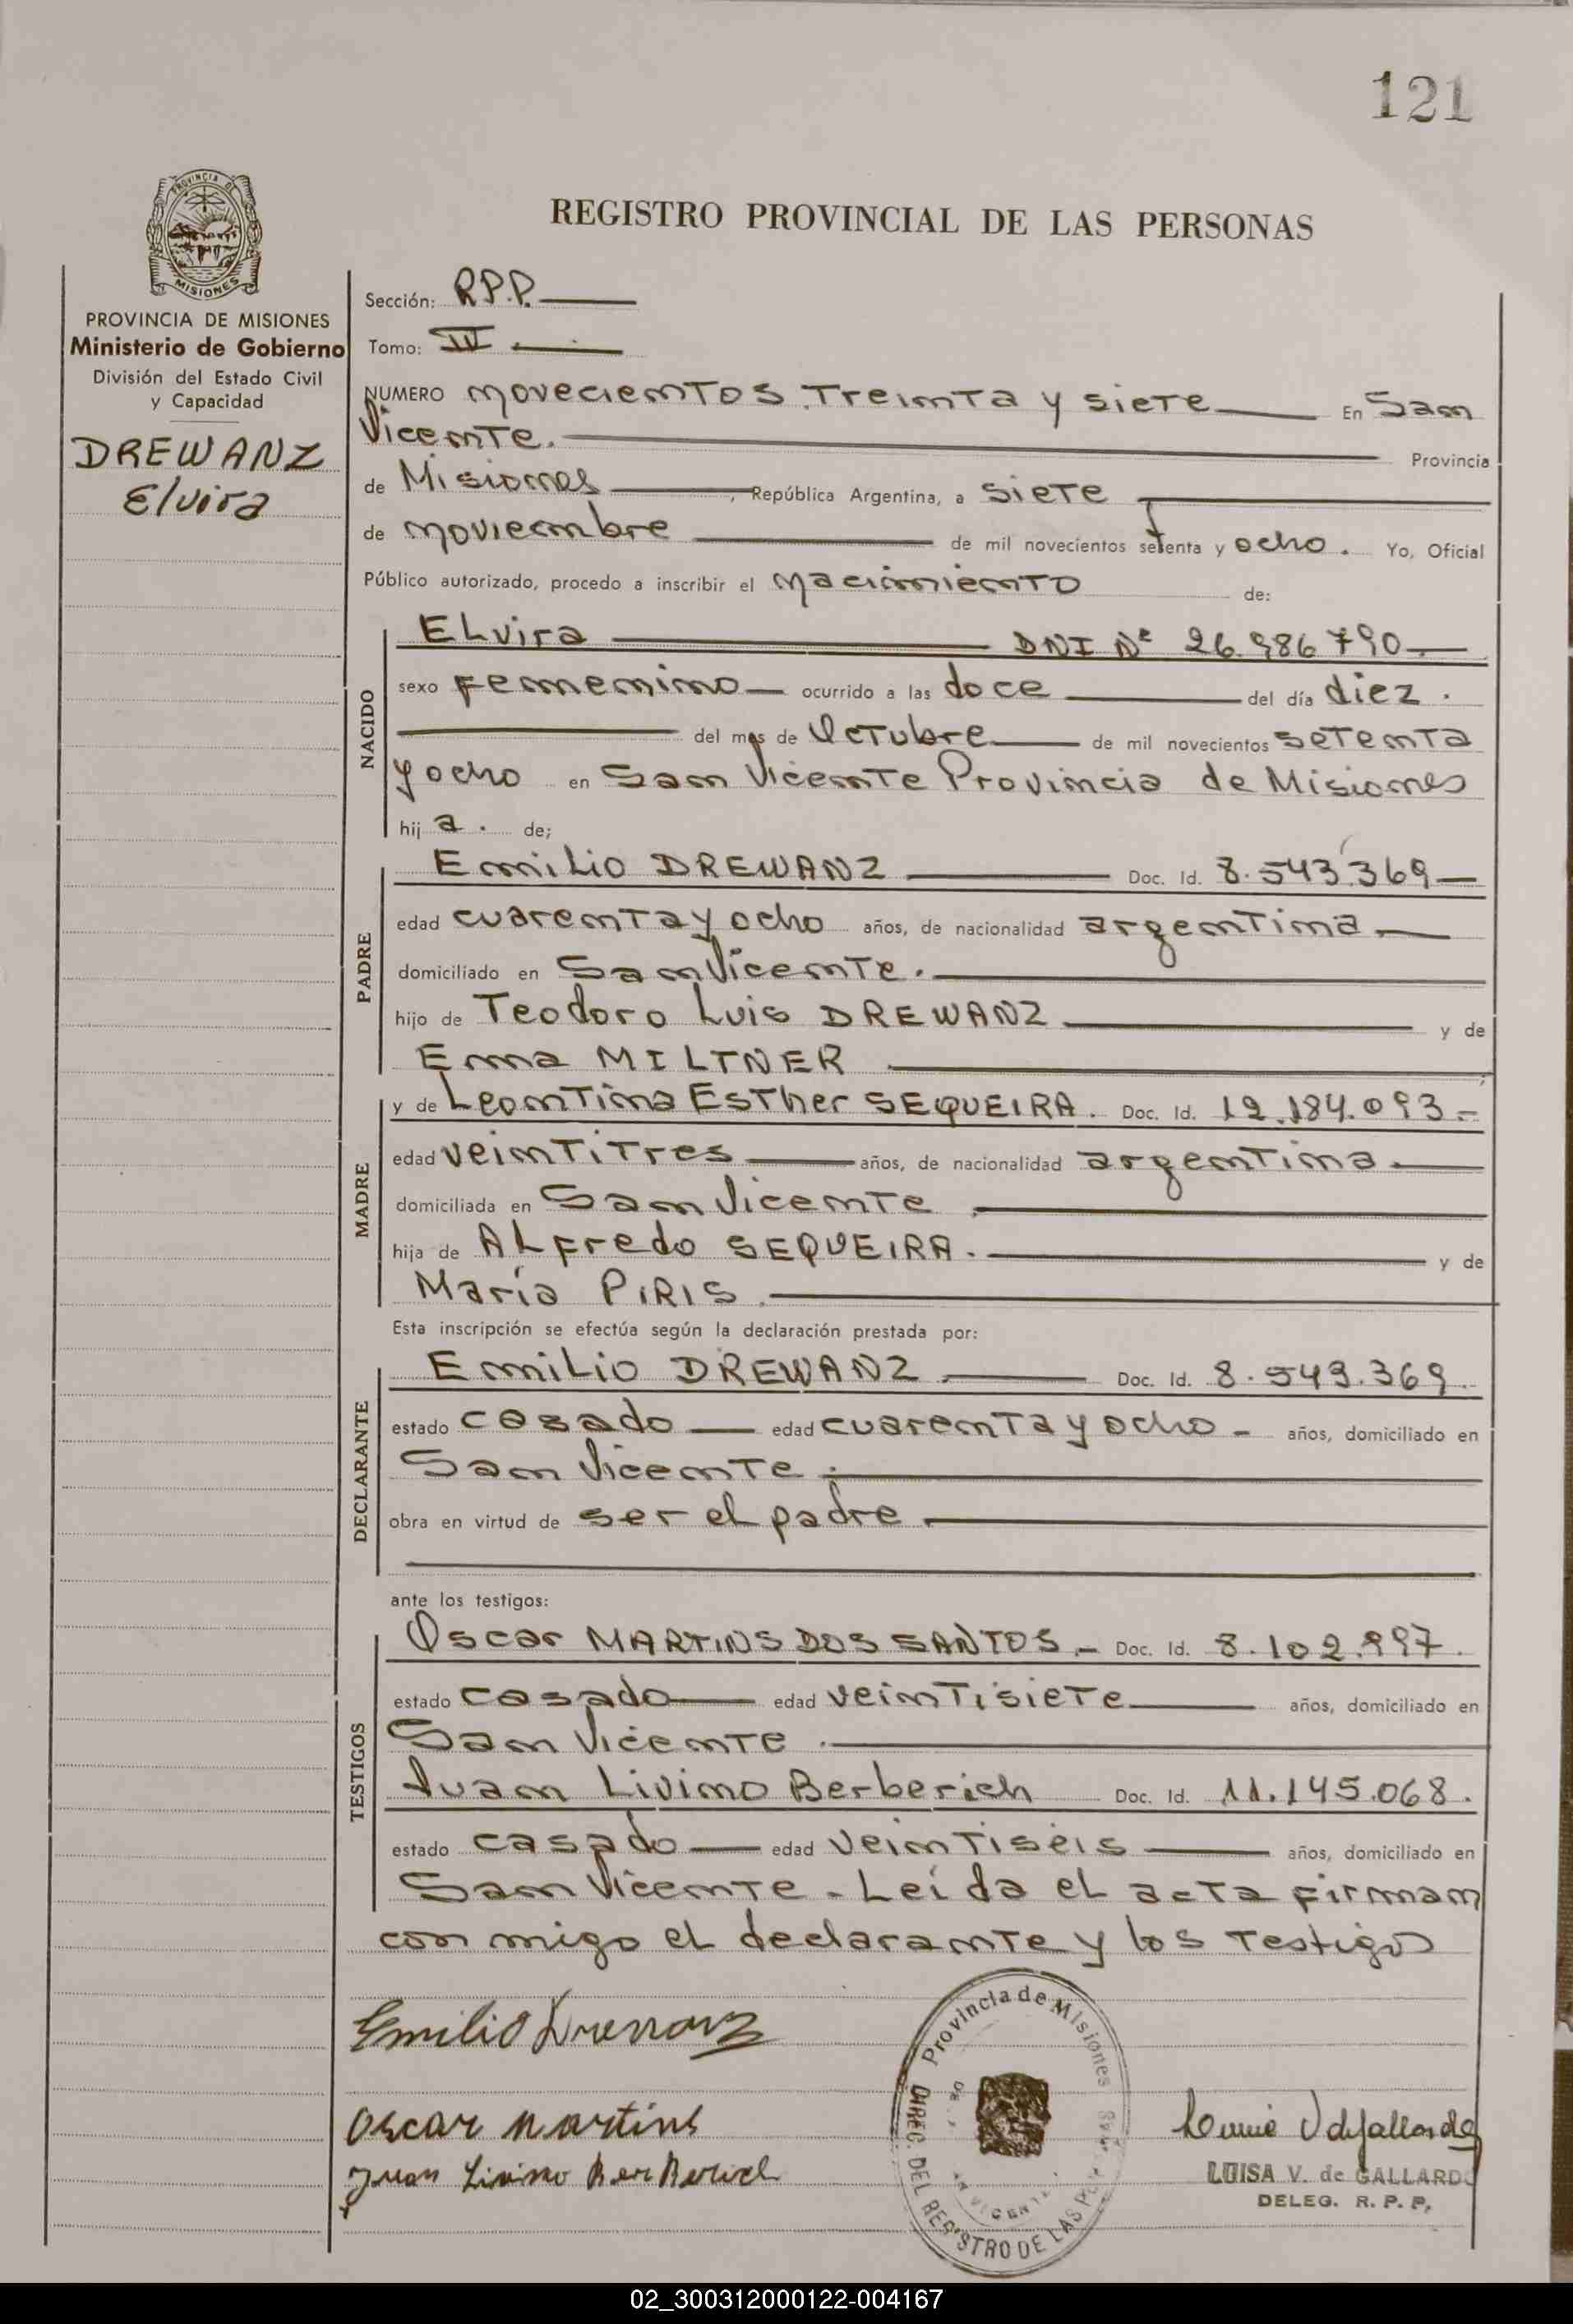 121
PROVINCIA DE
MISIONES
REGISTRO PROVINCIAL DE LAS PERSONAS
PROVINCIA DE MISIONES
Ministerio de Gobierno
División del Estado Civil
y Capacidad
DREWANZ
Elvira
Sección: R.P.P.
Tomo: IV
NUMERO novecientos treinta y siete En San
Vicente. Provincia
de Misiones, República Argentina, a siete
de noviembre de mil novecientos setenta y ocho. Yo, Oficial
Público autorizado, procedo a inscribir el nacimiento de:
NACIDO
Elvira DNI Nº 26.986790
sexo femenino ocurrido a las doce del día diez.
del mes de Octubre de mil novecientos setenta
y ocho en San Vicente Provincia de Misiones
hij a. de;
PADRE
Emilio DREWANZ Doc. Id. 8.543.369
edad cuarenta y ocho años, de nacionalidad argentina.
domiciliado en San Vicente.
hijo de Teodoro Luis DREWANZ y de
Ema MILTNER
MADRE
y de Leontina Esther SEQUEIRA. Doc. Id. 12.184.093.-
edad veintitres años, de nacionalidad argentina.
domiciliada en San Vicente.
hija de Alfredo SEQUEIRA. y de
María PIRIS.
Esta inscripción se efectúa según la declaración prestada por:
DECLARANTE
Emilio DREWANZ. Doc. Id. 8.543.369.
estado casado edad cuarenta y ocho - años, domiciliado en
San Vicente.
obra en virtud de ser el padre
ante los testigos:
TESTIGOS
Oscar MARTINS DOS SANTOS.- Doc. Id. 8.102.997.
estado casado edad veintisiete años, domiciliado en
San Vicente.
Juan Livino Berberich Doc. Id. 11.145.068.
estado casado edad veintiséis años, domiciliado en
San Vicente. Leída el acta firman
con migo el declarante y los testigos
Emilio Drewanz
Oscar Martins
Juan Livino Berberich
Provincia de Misiones
DIREC. DEL REGISTRO DE LAS
LUISA V. de GALLARDO
DELEG. R. P. P.
02_300312000122-004167